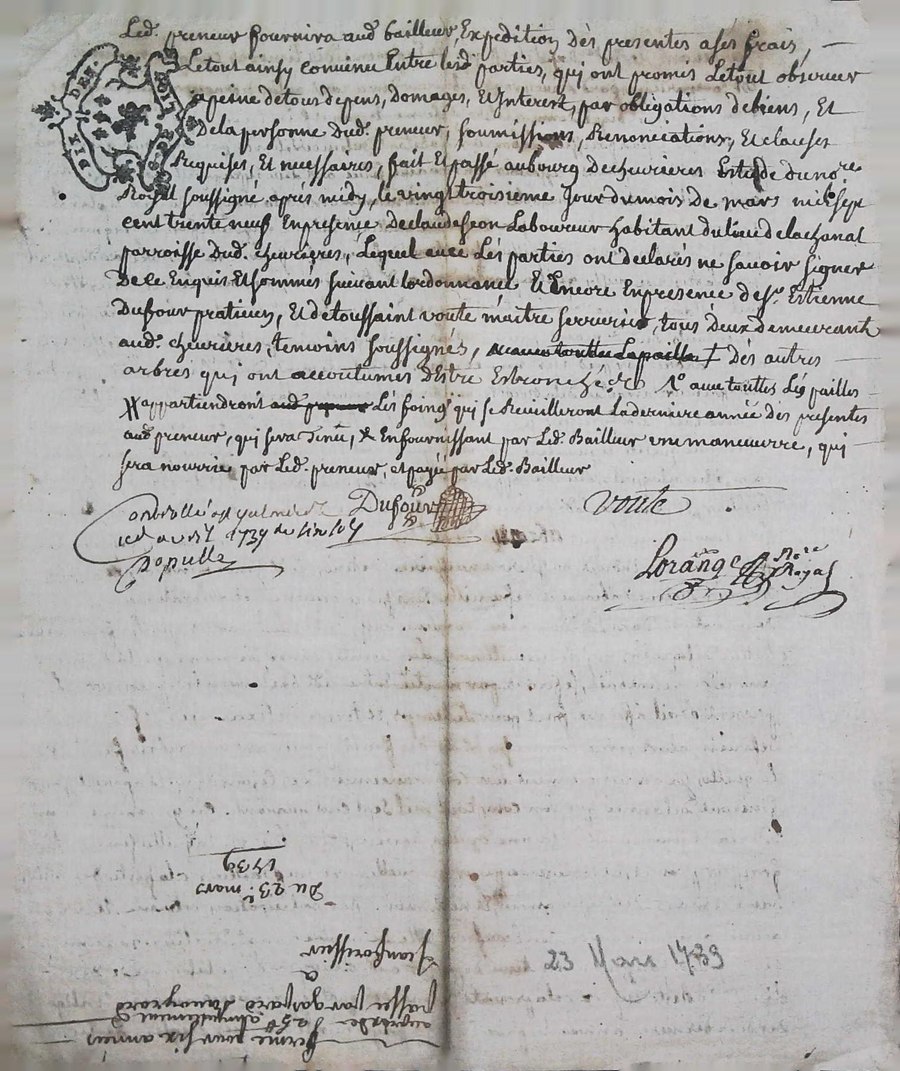 Led. preneur fournira aud. bailleur, Expedition dès presentes a ses frais,
Le tout ainsy convenu Entre lesd. parties, qui ont promis Le tout observer
a peine de tous depens, domages, Et Interest, par obligations de biens, Et
De la personne Dud. preneur, soumissions, Renonciations, Et clauses
Requises, Et necessaires, fait Et passé au bourg de chevrieres Estude du no.re
Royal soussigné après midy, le vingt troisieme Jour du mois De mars mil sept
cent trente neuf En presence De claude Laboureur habitant du lieu de la chanal
parroisse Dud. chevrieres, Lequel avec Lés parties ont declarés ne savoir signer
De ce Enquis Et sommés suivant lordonnance Et Encore En presence de s.r Estienne
Dufour praticien, Et de toussaint voute maitre serrurier, tous deux demeurants
aud. chevrieres, temoins soussignés, dès autres
arbres qui ont accoutumés dEstre avec touttes Lés pailles
appartiendront Lés foins qui se Reuilleront La derniere année dès presentes
aud. preneur, qui sera tenu, En fournissant par Led. Bailleur un manœuvre, qui
sera nourrie par Led. preneur, et payé par Led. Bailleur
DIX DEN.
Dufour
voute
Controllé
1739
Lorange no.re Royal
Du 23.e mars
1739
ferme pour six années
passée par
a
23 Mars 1739